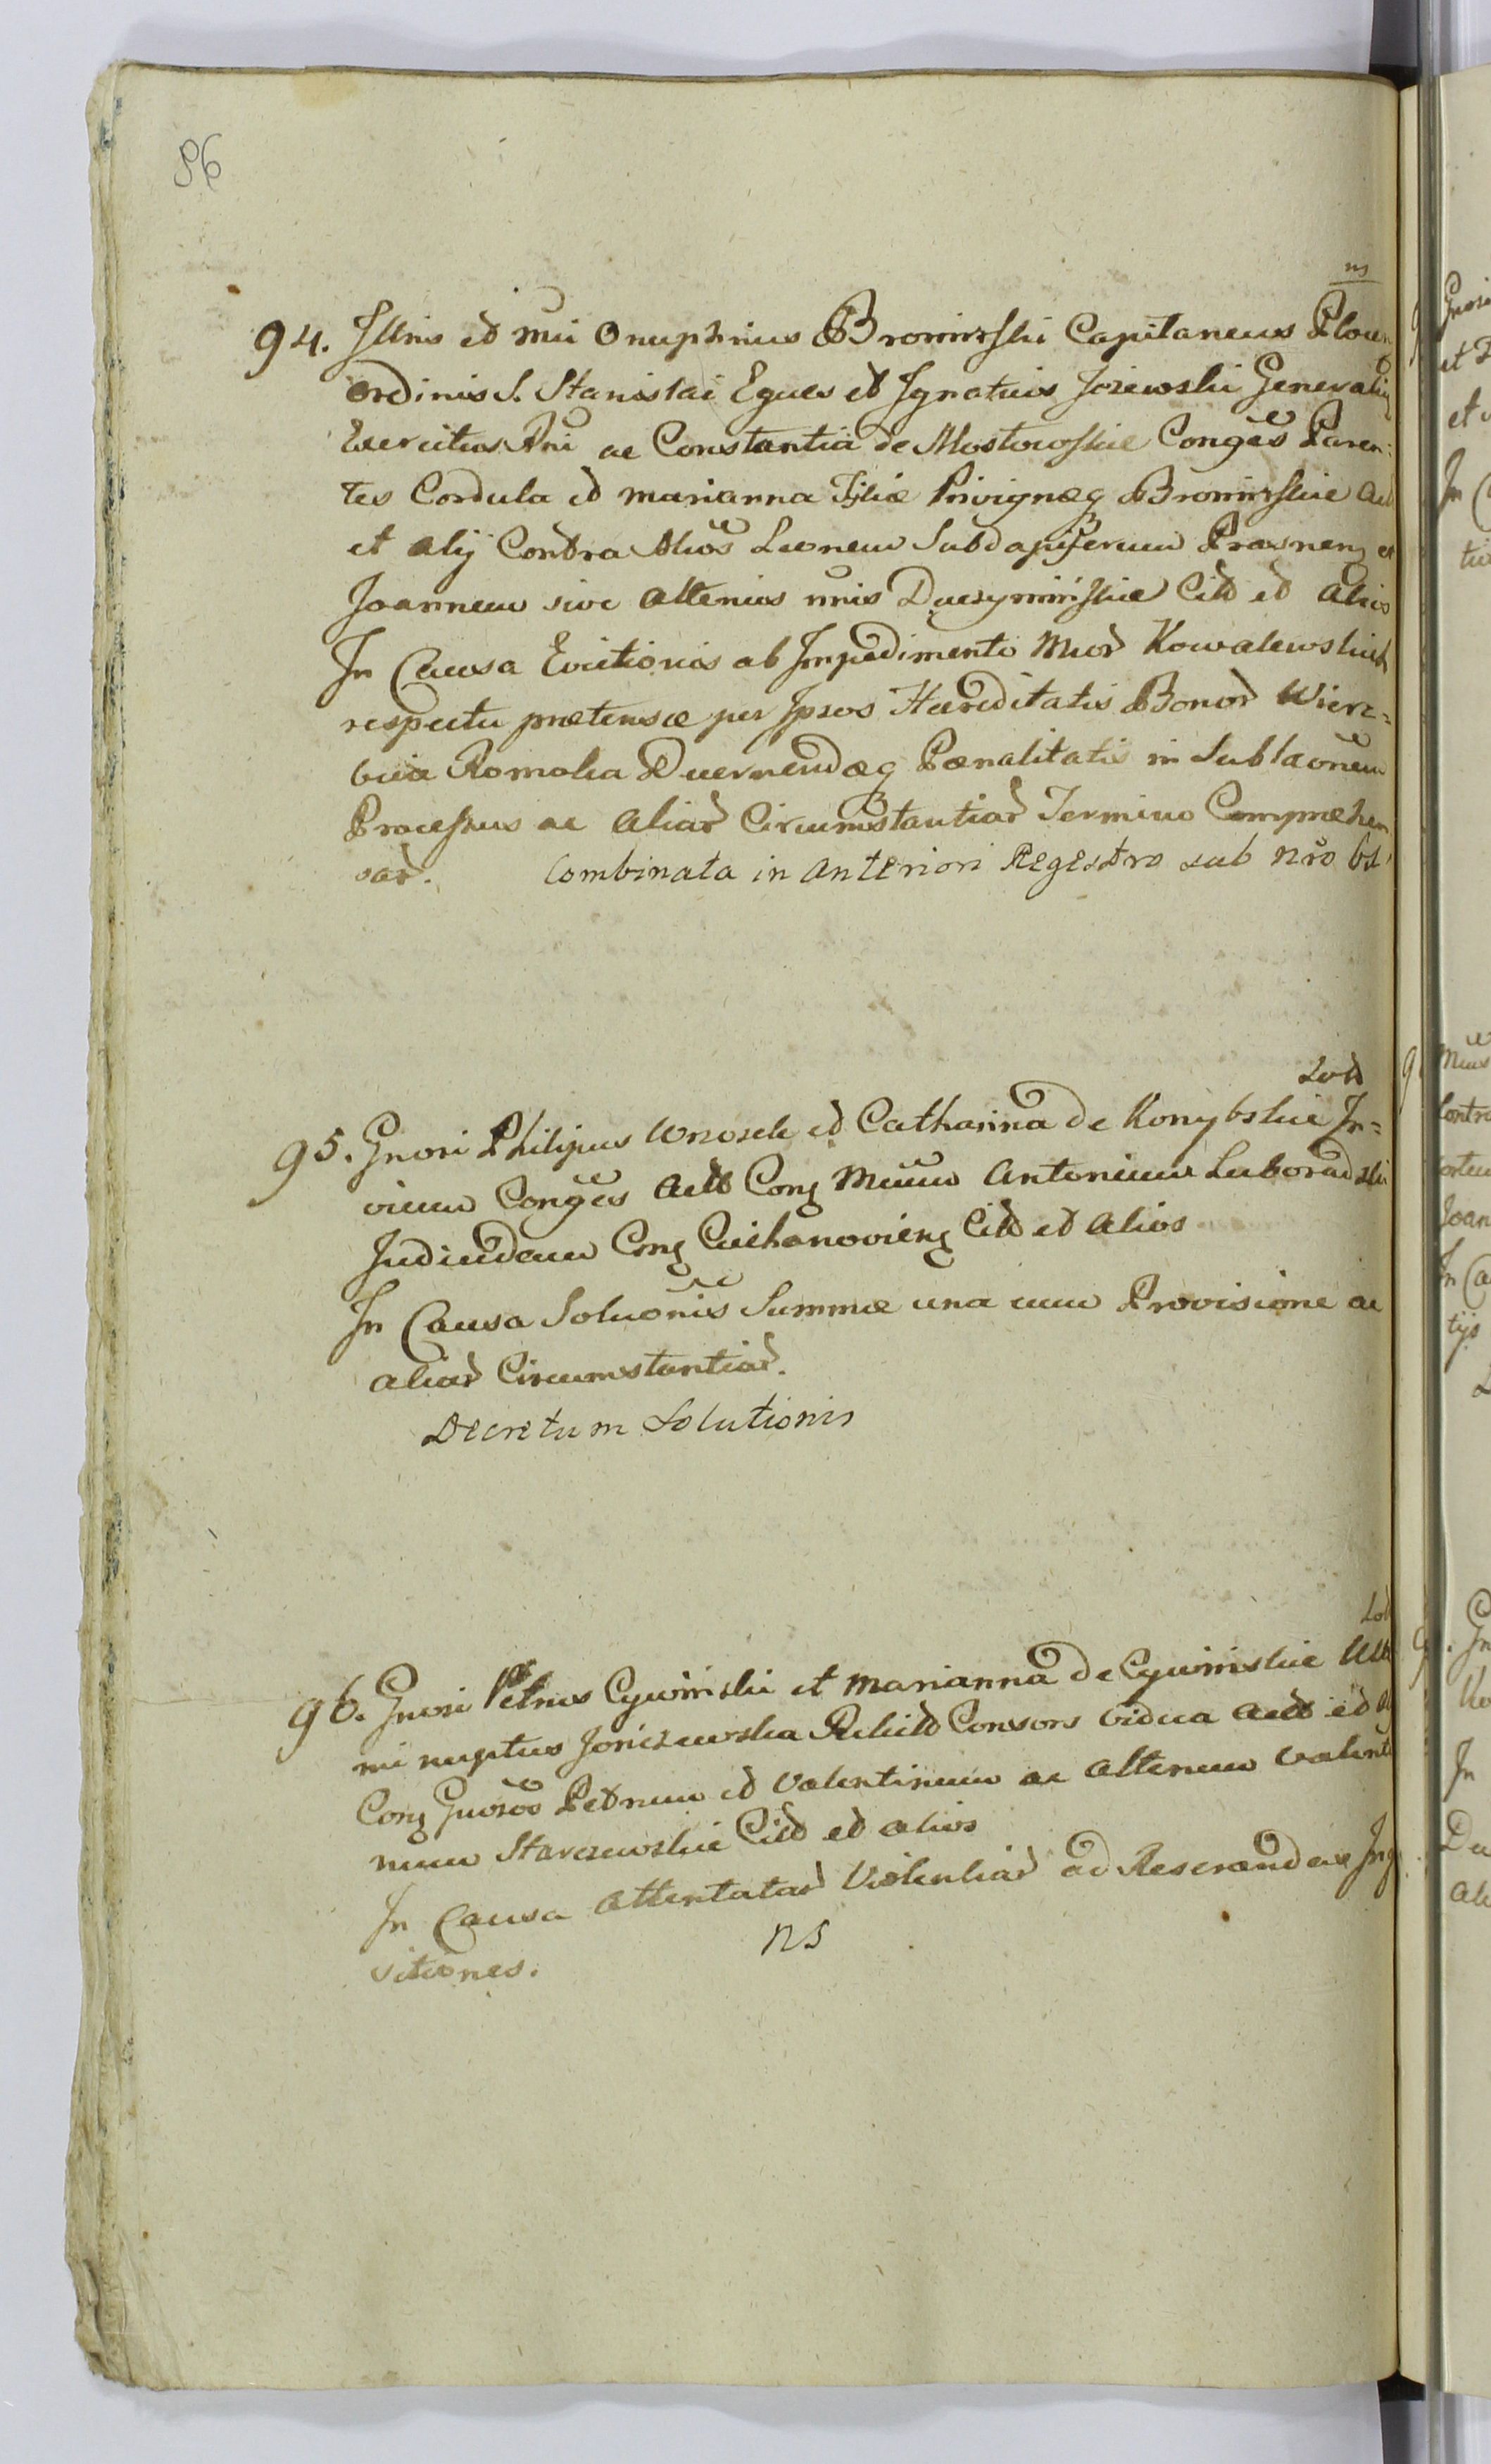 86
ns
94. Jllris et Mci Onuphrius Bromirski Capitaneus Plocen
Ordinis S. Stanislai Eques et Jgnatius Jożewski Generalis
Exercitus Rni ac Constantia de Mostowskie Conges Paren-
tes Cordula et Marianna Filiæ Privignæq Bromirskie Act
et alij Contra Mcos Leonem Subdapiferum Prasnen et
Joannem sive Altenius nnis Duczyminskie Citt et Alios
Jn Causa Evictionis ab Jmpedimento Mcor Kowalewskich
respectu prætensæ per Jpsos Hæreditatis Bonor Wierz=
bica Romoka Decernendæq Pœnalitatis in Sublaonem
Processus ac Aliar Circumstantiar Termino Compræhen
sar. Combinata in Anteriori Regestro sub Nro
Sold
95. Gnosi Philipus Wrosek et Catharina de Konybskie Jn=
vicem Conges Actt Con Mcum Antonium Laboradzki
Judicidem Con Ciechanovien Citt et Alios
Jn Causa Soluonis Summæ una cum Provisione ac
aliar Circumstantiar.
Decretum Solutionis
96. Gnosi Petrus Cywinski et Marianna de Cywinskie
mi nuptus Joniszewska Relict Consors Vidua Actt et
Con Gnosos Petrum et Valentinum ac Alterum Valenti
num Starczewskie Citt et alios
Jn Causa Attentatar Violentiar ad Reserandas Jnq
sitiones.
ns